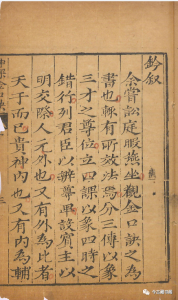 鈐叙
余嘗訟庭暇燕坐觀金口訣之為
書也有所效法焉分三傳以象
三才之尊位立四課以象四時之
錯行列君臣以辨尊卑設賓主以
明交際人元外也又有外為此者
天干而已貴神内也又有内為輔
三